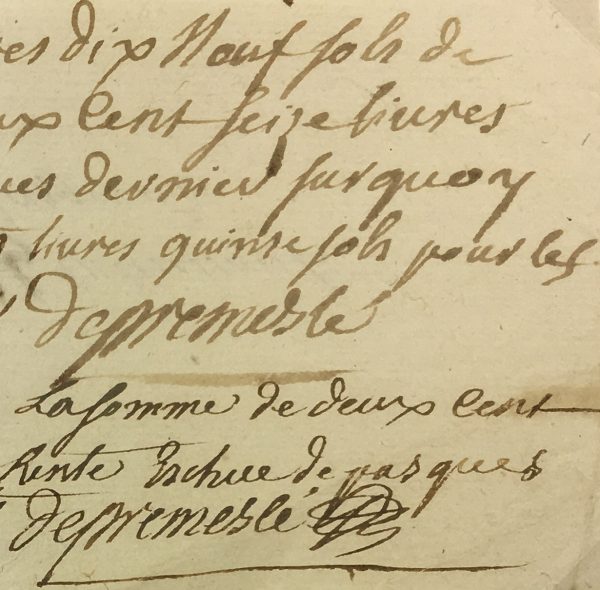 es dix Neuf sols de
ux Cent seize livres
ues dernier sur quoy
livres quinse sols pour les
Depremeslé
La somme de deux Cent
Rente Eschue de pasques
Depremeslé